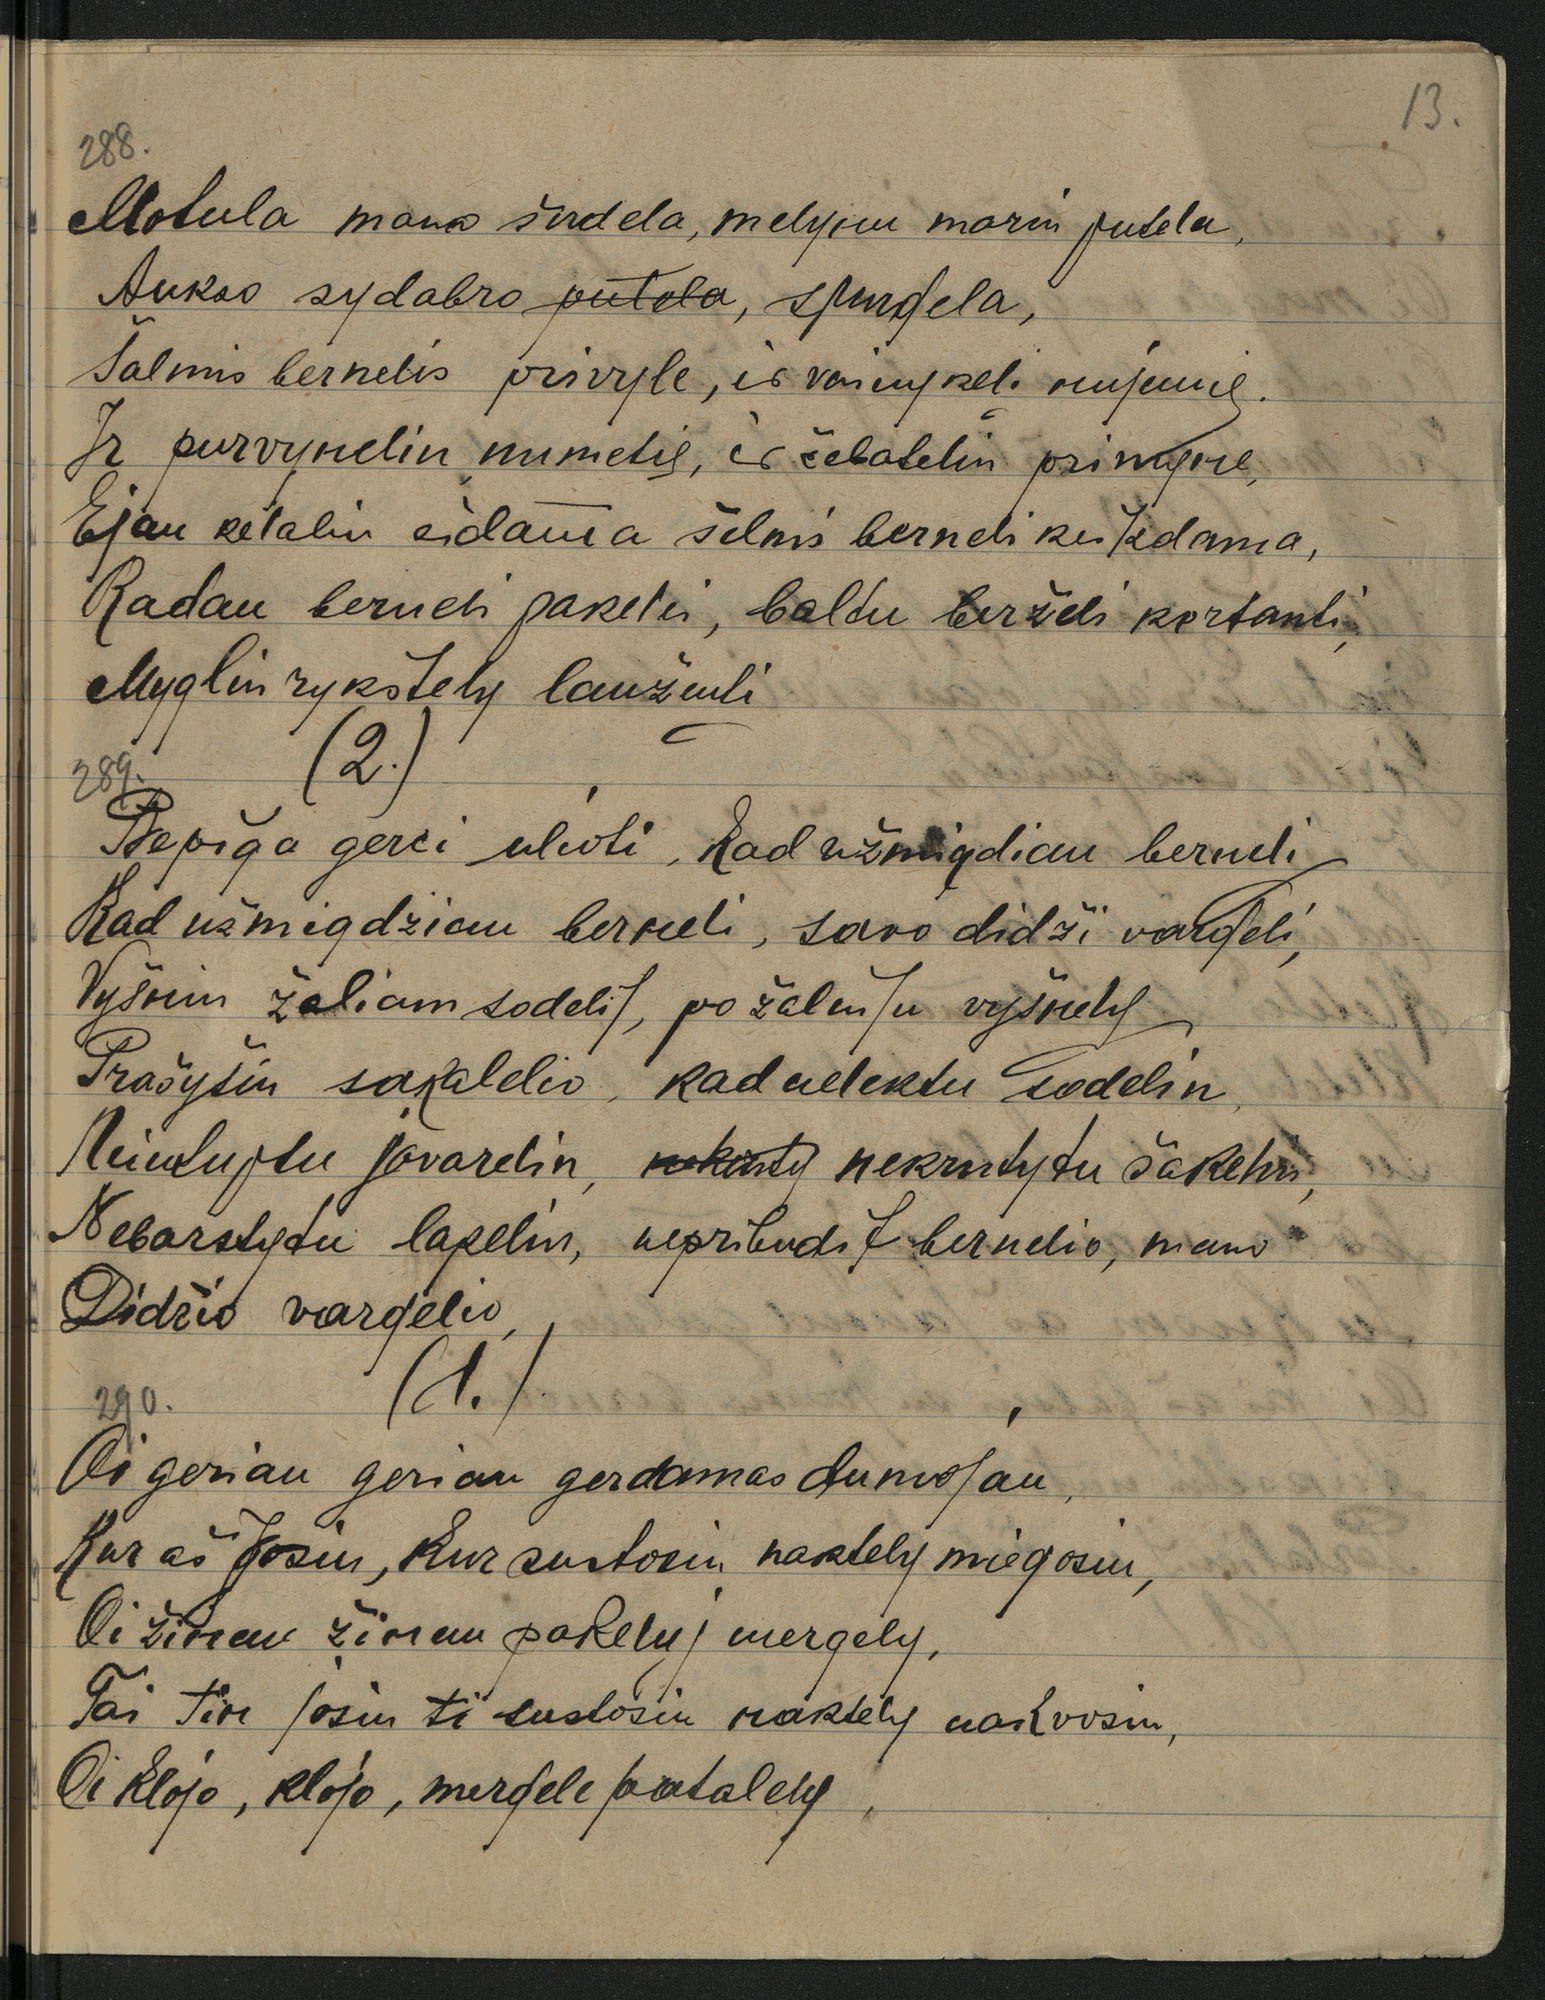 13.
288.
Motula mano širdela, melynu marin putela,
Aukso sydabro putola, spurgela,
Šalmis bernelis privyle, ir vainykeli nujemiė.
Ir purvynelin numetiė, ir čebatelin primyne,
Ejau kelaliu eidama šelmi berneli keikdama,
Radau berneli pakelei, baltu berželi kertanti,
Myglin rykštely laužunti
(2.)
289.
Bepiga gerci ulioti, Kad užmigdiau berneli
Kad užmigdžiau berneli, savo didži vargeli,
Vyšnin žaliam sodelij, po žaluju vyšnely
Prašyšiu sakalelio, kad nelektu sodelin,
Neintuptu javarelin, nekruty nekrutytu šakeliu,
Nebarstytu lapeliu, nepribudit bernelio, mano
Didžio vargelio,
(1.)
290.
Oi geriau geriau gerdamas dumojau,
Kur aš Josiu, Kur sustosiu naktely miegosiu,
Oi žinau žinau pakeluj mergely,
Tai tin josiu ti sustosiu naktely nakvosiu,
Oi Klojo, klojo, mergele patalely,